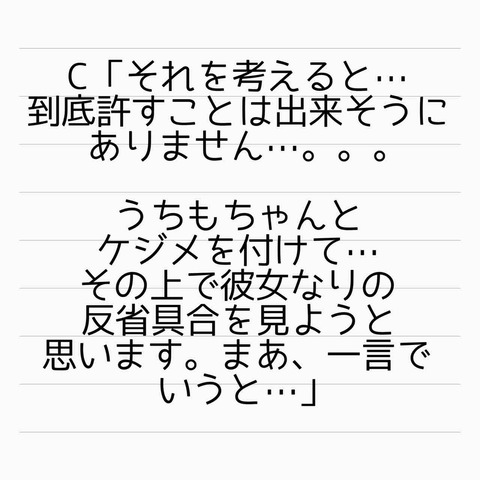 C「それを考えると…
到底許すことは出来そうに
ありません…。。。
うちもちゃんと
ケジメを付けて…
その上で彼女なりの
反省具合を見ようと
思います。まあ、一言で
いうと…」